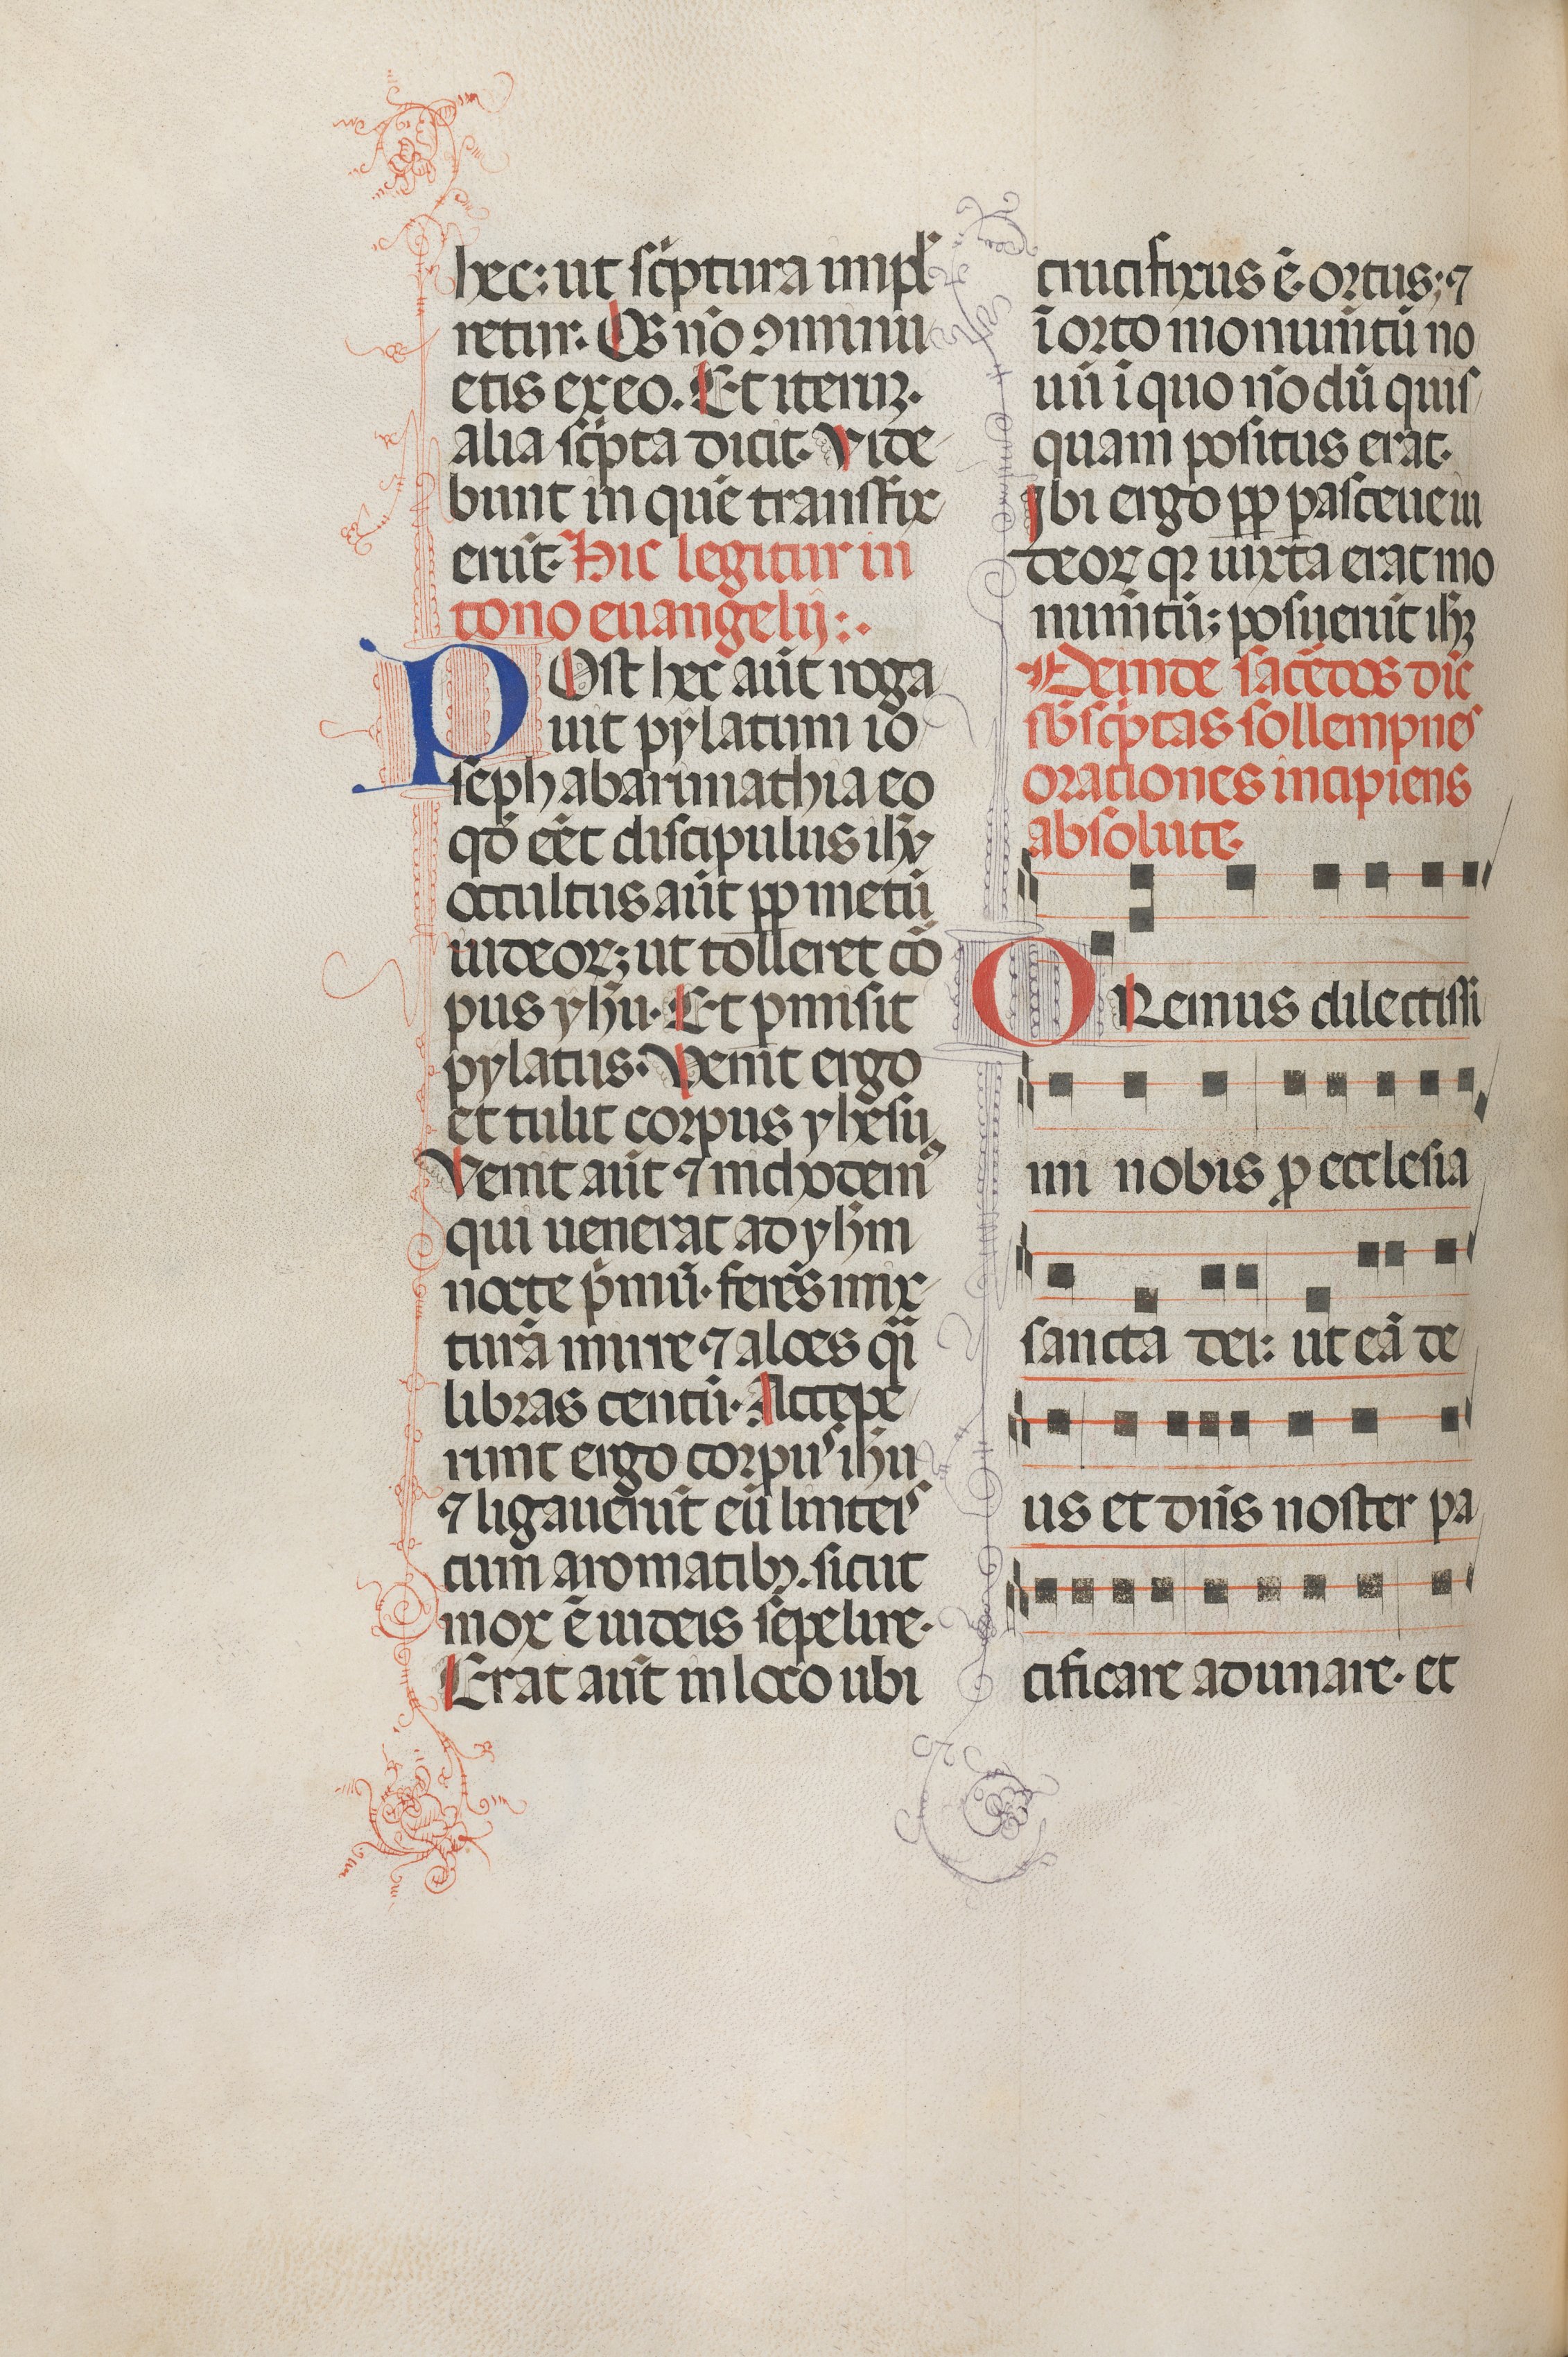 hec: ut sc̍ptura impl̍
retur. Os nō ꝯminui
etis ex eo. Et iteruꝫ.
alia sc̍pta dicit. Vide
bunt in quē transfix
erūt. Hic legitur in
tono euangelij:.
POst hec aūt roga
uit pylatum io
seph ab arimathia eo
qd̄ eēt discipulus ih̄u
occultus aūt ꝓp metū
iudeoꝝ; ut tolleret cō
pus yh̄u. Et pmisit
pylatus. Venit ergo
et tulit corpus yhesu.
Venit aūt ⁊ nichodemꝰ
qui uenerat ad yh̄m
nocte p̍mū. ferēs mix
turā mirre ⁊ aloes q̄i
libras centū. Accepe
runt ergo corpus ih̄u
⁊ ligauerūt eū linteis
cum aromatibꝫ. sicut
mox ē iudeis sepelire.
Erat aūt in loco ubi
crucifixus ē. ortus; ⁊
ī orto monumētū no
uū ī quo nōdū quis
quam positus erat.
Ibi ergo ꝓp pasceue iu
deoꝝ qꝛ iuxta erat mo
numētū; posuerūt ih̄ꝫ
Deinde sac̄dos dic̄
sb̄sc̍ptas sollempnes
orationes incipiens
absolute.
ORemus dilectissi
mi nobis ꝓ ecclesia
sancta dei: ut eā de
us et dn̄s noster pa
cificare adunare. et